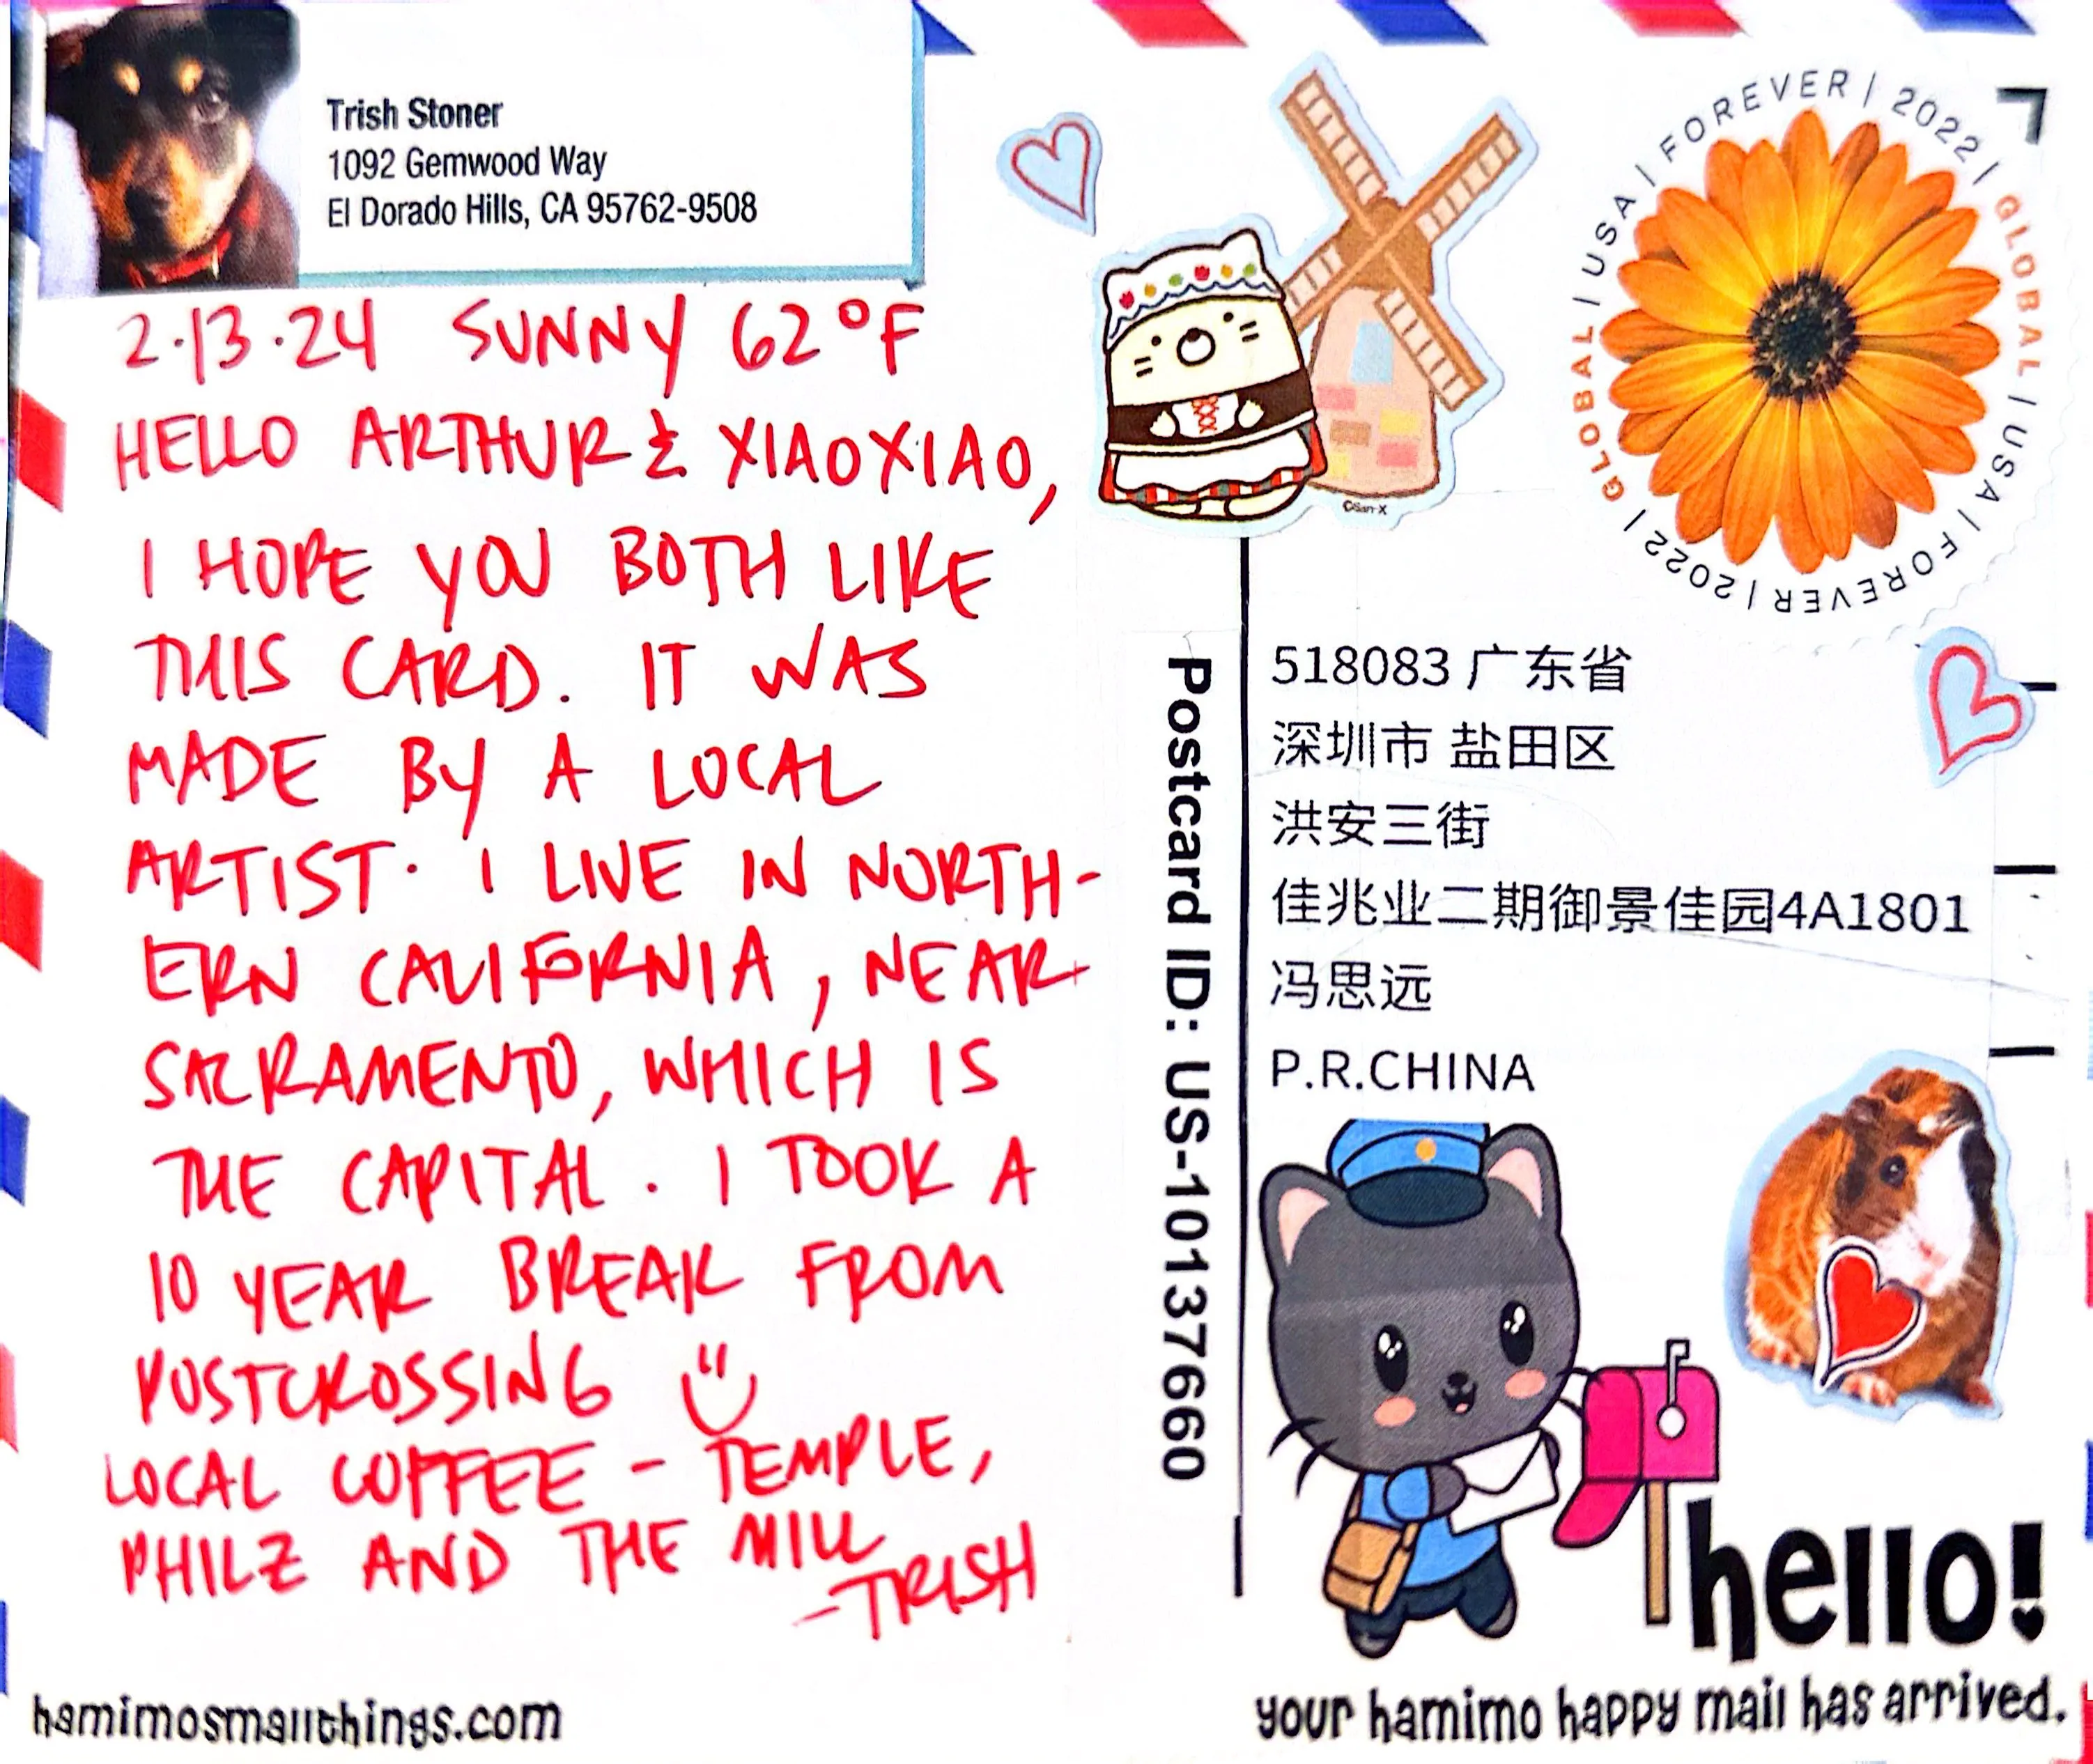 Trish Stoner
1092 Gemwood Way
El Dorado Hills, CA 95762-9508
2.13.24 SUNNY 62°F
HELLO ARTHUR & XIAOXIAO,
I HOPE YOU BOTH LIKE
THIS CARD. IT WAS
MADE BY A LOCAL
ARTIST. I LIVE IN NORTH-
ERN CALIFORNIA, NEAR
SACRAMENTO, WHICH IS
THE CAPITAL. I TOOK A
10 YEAR BREAK FROM
POSTCROSSING
LOCAL COFFEE - TEMPLE,
PHILZ AND THE MILL
-TRISH
hamimosmallthings.com
©San-X
GLOBAL | USA | FOREVER | 2022 | GLOBAL | USA | FOREVER | 2022 |
Postcard ID: US-10137660
518083 广东省
深圳市 盐田区
洪安三街
佳兆业二期御景佳园4A1801
冯思远
P.R.CHINA
hello!
your hamimo happy mail has arrived.